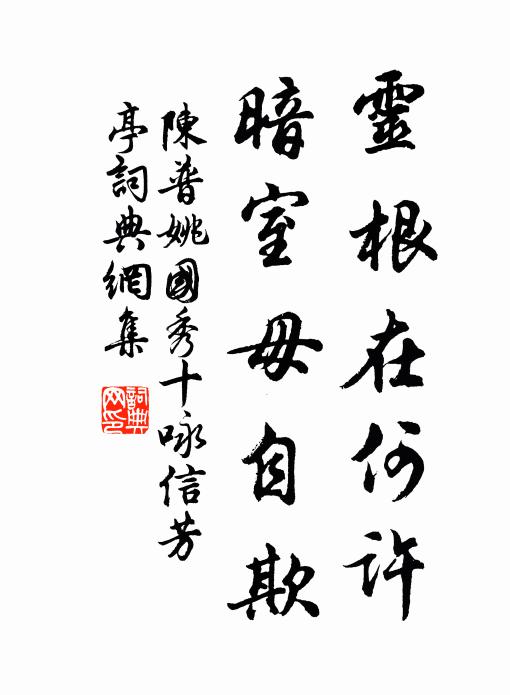 靈根在何許
暗室毋自欺
陳普姚國秀十咏信芳
亭詞典網集
詞典网印